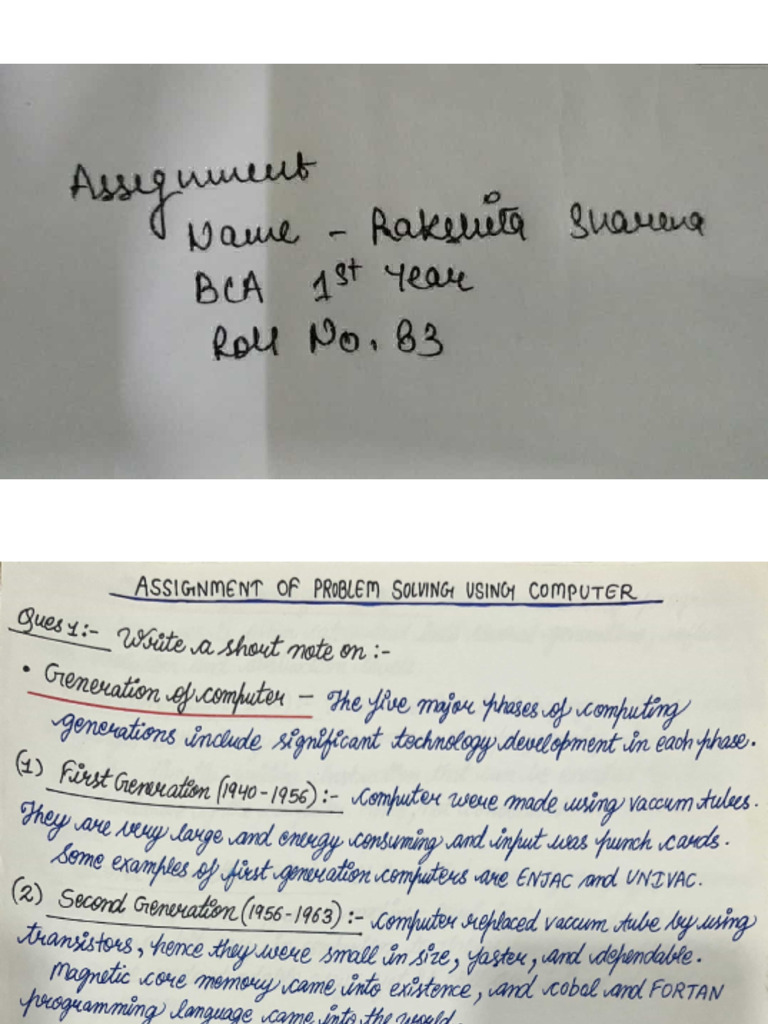 Assignment
Name - Rakshita Sharma
BCA 1st Year
Roll No. 83
ASSIGNMENT OF PROBLEM SOLVING USING COMPUTER
Ques 1:- Write a short note on :-
• Generation of computer – The five major phases of computing
generations include significant technology development in each phase.
(1) First Generation (1940-1956) :- Computer were made using vaccum tubes.
They are very large and energy consuming and input was punch cards.
Some examples of first generation computers are ENJAC and UNIVAC.
(2) Second Generation (1956-1963) :- Computer replaced vaccum tube by using
transistors, hence they were small in size, faster, and dependable.
Magnetic core memory came into existence, and cobol and FORTAN
programming language came into the world.